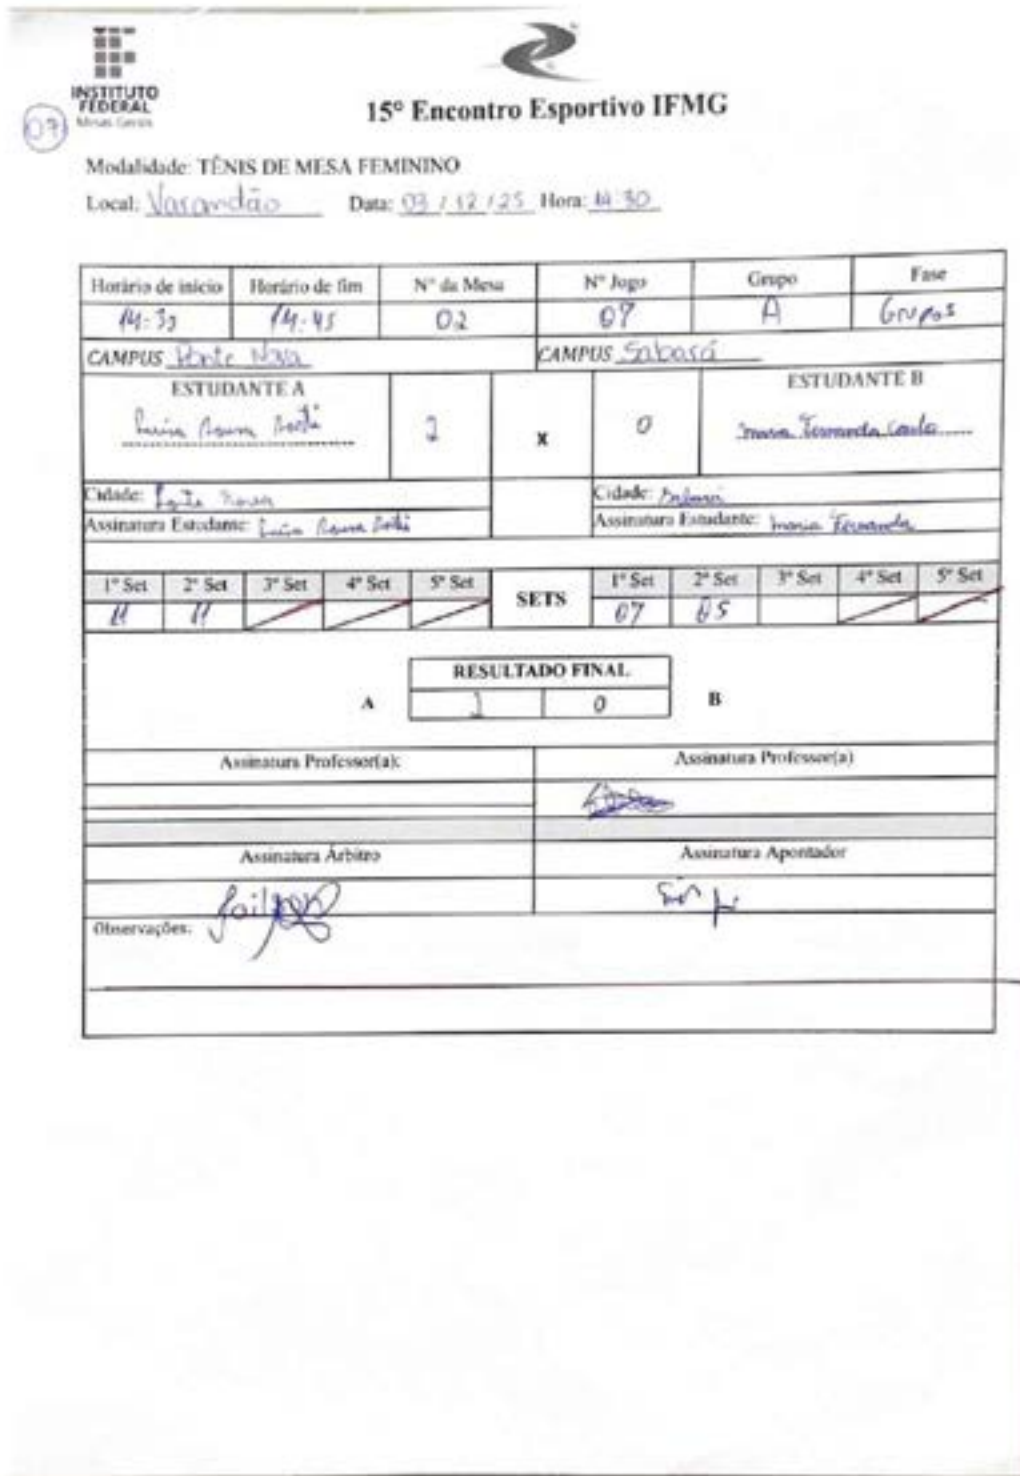 INSTITUTO
FEDERAL
Minas Gerais
07
15º Encontro Esportivo IFMG
Modalidade: TÊNIS DE MESA FEMININO
Local: Varandão Data: 03 / 12 / 25 Hora: 14:30
Horário de início Horário de fim Nº da Mesa Nº Jogo Grupo Fase
14:45 02 07 A Grupos
CAMPUS Ponte Nova CAMPUS Sabará
ESTUDANTE A ESTUDANTE B
2 x 0 Maria Fernanda
Cidade: Ponte Nova Cidade: Sabará
Assinatura Estudante: Assinatura Estudante: Maria Fernanda
1º Set 2º Set 3º Set 4º Set 5º Set SETS 1º Set 2º Set 3º Set 4º Set 5º Set
11 11 07 05
RESULTADO FINAL
A 2 0 B
Assinatura Professor(a): Assinatura Professor(a)
Assinatura Árbitro Assinatura Apontador
Observações: